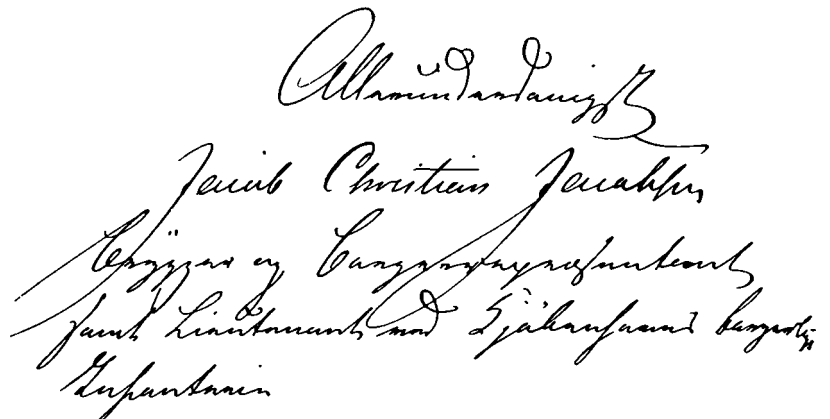 Allerunderdanigst
Jacob Christian Jacobsen
Brygger og Borgerrepræsentant
samt Lieutenant ved Kjøbenhavns borgerlige
Infanterie